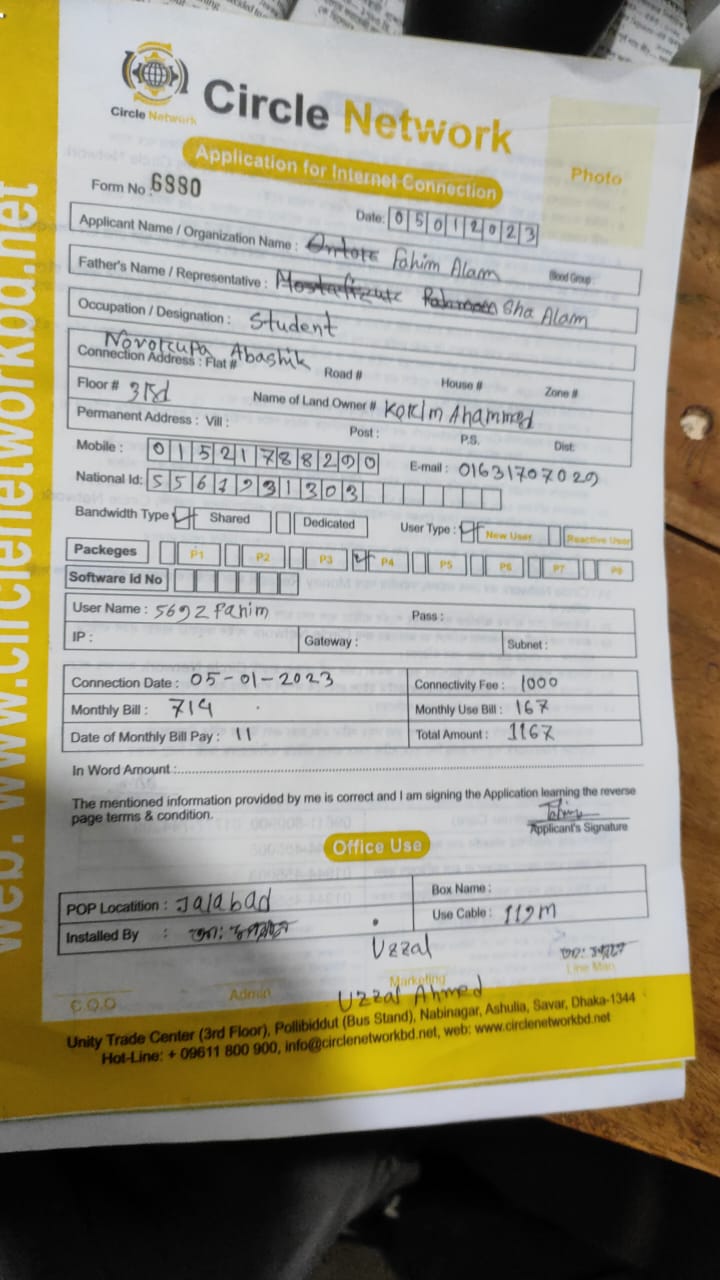 Circle Network
Circle Network
Application for Internet Connection
Photo
Form No 6980
Date: 05012023
Applicant Name / Organization Name : Fahim Alam Blood Group :
Father's Name / Representative : Sha Alam
Occupation / Designation : Student
Abashik
Connection Address : Flat # Road # House # Zone #
Floor # 3rd Name of Land Owner # Karim Ahammed
Permanent Address : Vill : Post : P.S. Dist:
Mobile : 01521788290 E-mail : 01631707029
National Id: 5567931303
Bandwidth Type Shared Dedicated User Type : New User Reactive User
Packeges P1 P2 P3 P4 P5 P6 P7 P8
Software Id No
User Name : 5692 Fahim Pass :
IP : Gateway : Subnet :
Connection Date : 05-01-2023 Connectivity Fee : 1000
Monthly Bill : 714 Monthly Use Bill : 167
Date of Monthly Bill Pay : 11 Total Amount : 1167
In Word Amount :
The mentioned information provided by me is correct and I am signing the Application learning the reverse
page terms & condition.
Applicant's Signature
Office Use
POP Locatition : Jalabad Box Name :
Installed By : Use Cable : 112m
Uzzal
C.O.O Admin Marketing Line Man
Uzzal Ahmed
Unity Trade Center (3rd Floor), Pollibiddut (Bus Stand), Nabinagar, Ashulia, Savar, Dhaka-1344
Hot-Line: + 09611 800 900, info@circlenetworkbd.net, web: www.circlenetworkbd.net
web: www.circlenetworkbd.net